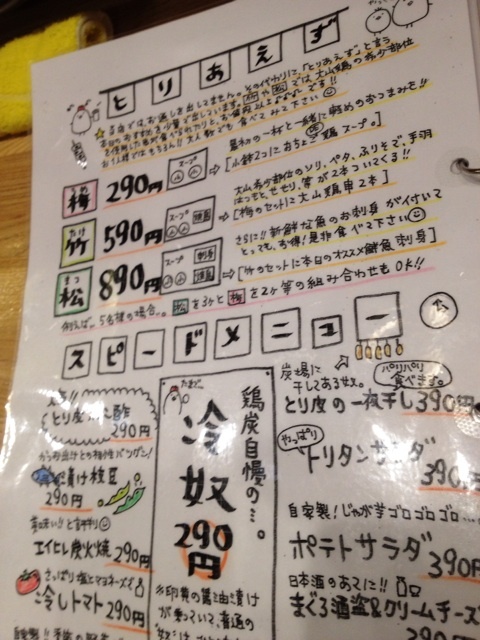 とりあえず
☆当店ではお通しを出してません。そのかわりに「とりあえず」と言う
お1人様ではもちろん!! 大人数でも食べてみて下さい
梅 290円
スープ
最初の一杯と一緒に軽めのおつまみを!!
[小鉢2コにおちょこ鶏スープ。]
竹 590円
スープ
大山希少部位のソリ、ペタ、ふりそで、手羽
はつもと、せせり、等が2本ついてくる!!
[梅のセットに大山鶏串2本]
松 890円
スープ 刺身
さらに!! 新鮮な魚のお刺身が付いて
とっても、お得!是非食べて下さい
[竹のセットに本日のオススメ鮮魚刺身]
例えば、5名様の場合…。松を3ヶと梅を2ヶ等の組み合わせもOK!!
スピードメニュー
とり皮ポン酢
290円
漬け枝豆
290円
エイヒレ炭火焼 290円
さっぱり塩とマヨネーズで
冷しトマト 290円
たまご
鶏炭自慢の…。
冷奴
290円
醤油漬け
が乗っていて、普通の
炭場に
干してある奴。
パリパリ
食べます。
とり皮の一夜干し 390円
やっぱり
トリタンサラダ
390円
自家製!じゃが芋ゴロゴロゴロ…
ポテトサラダ 390円
日本酒のあてに!!
まぐろ酒盗&クリームチーズ
390円